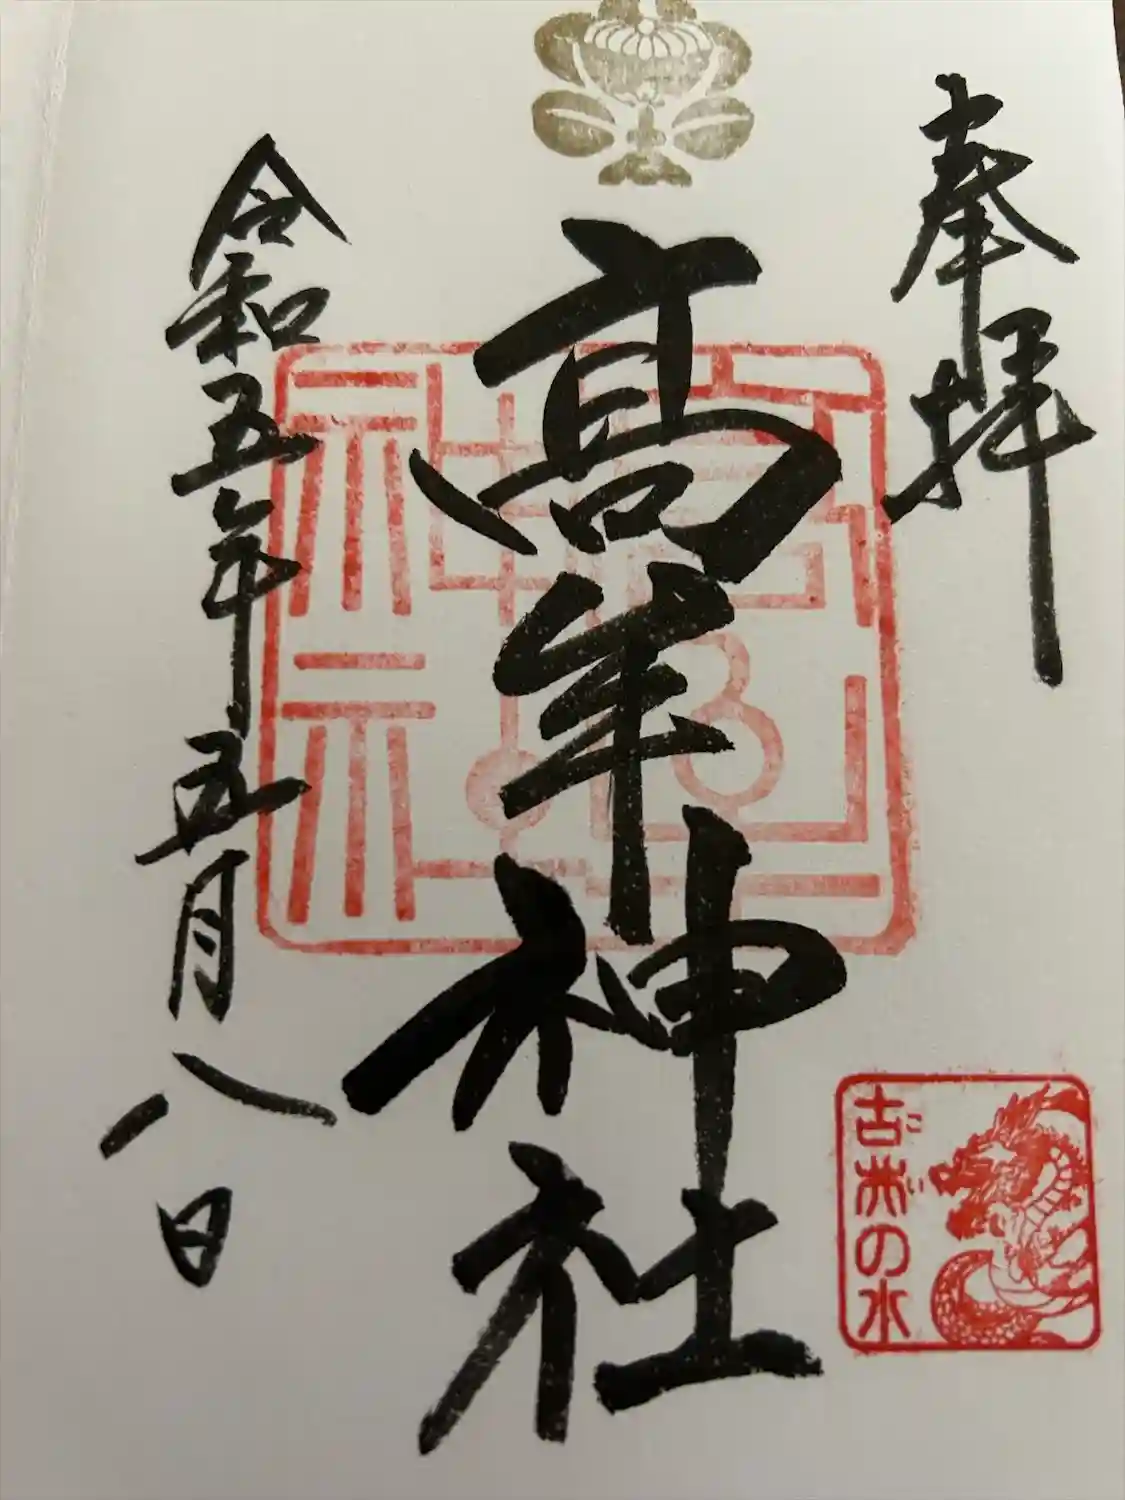 奉拝
高牟神社
令和五年五月八日
高牟
神社
古井の水
こい